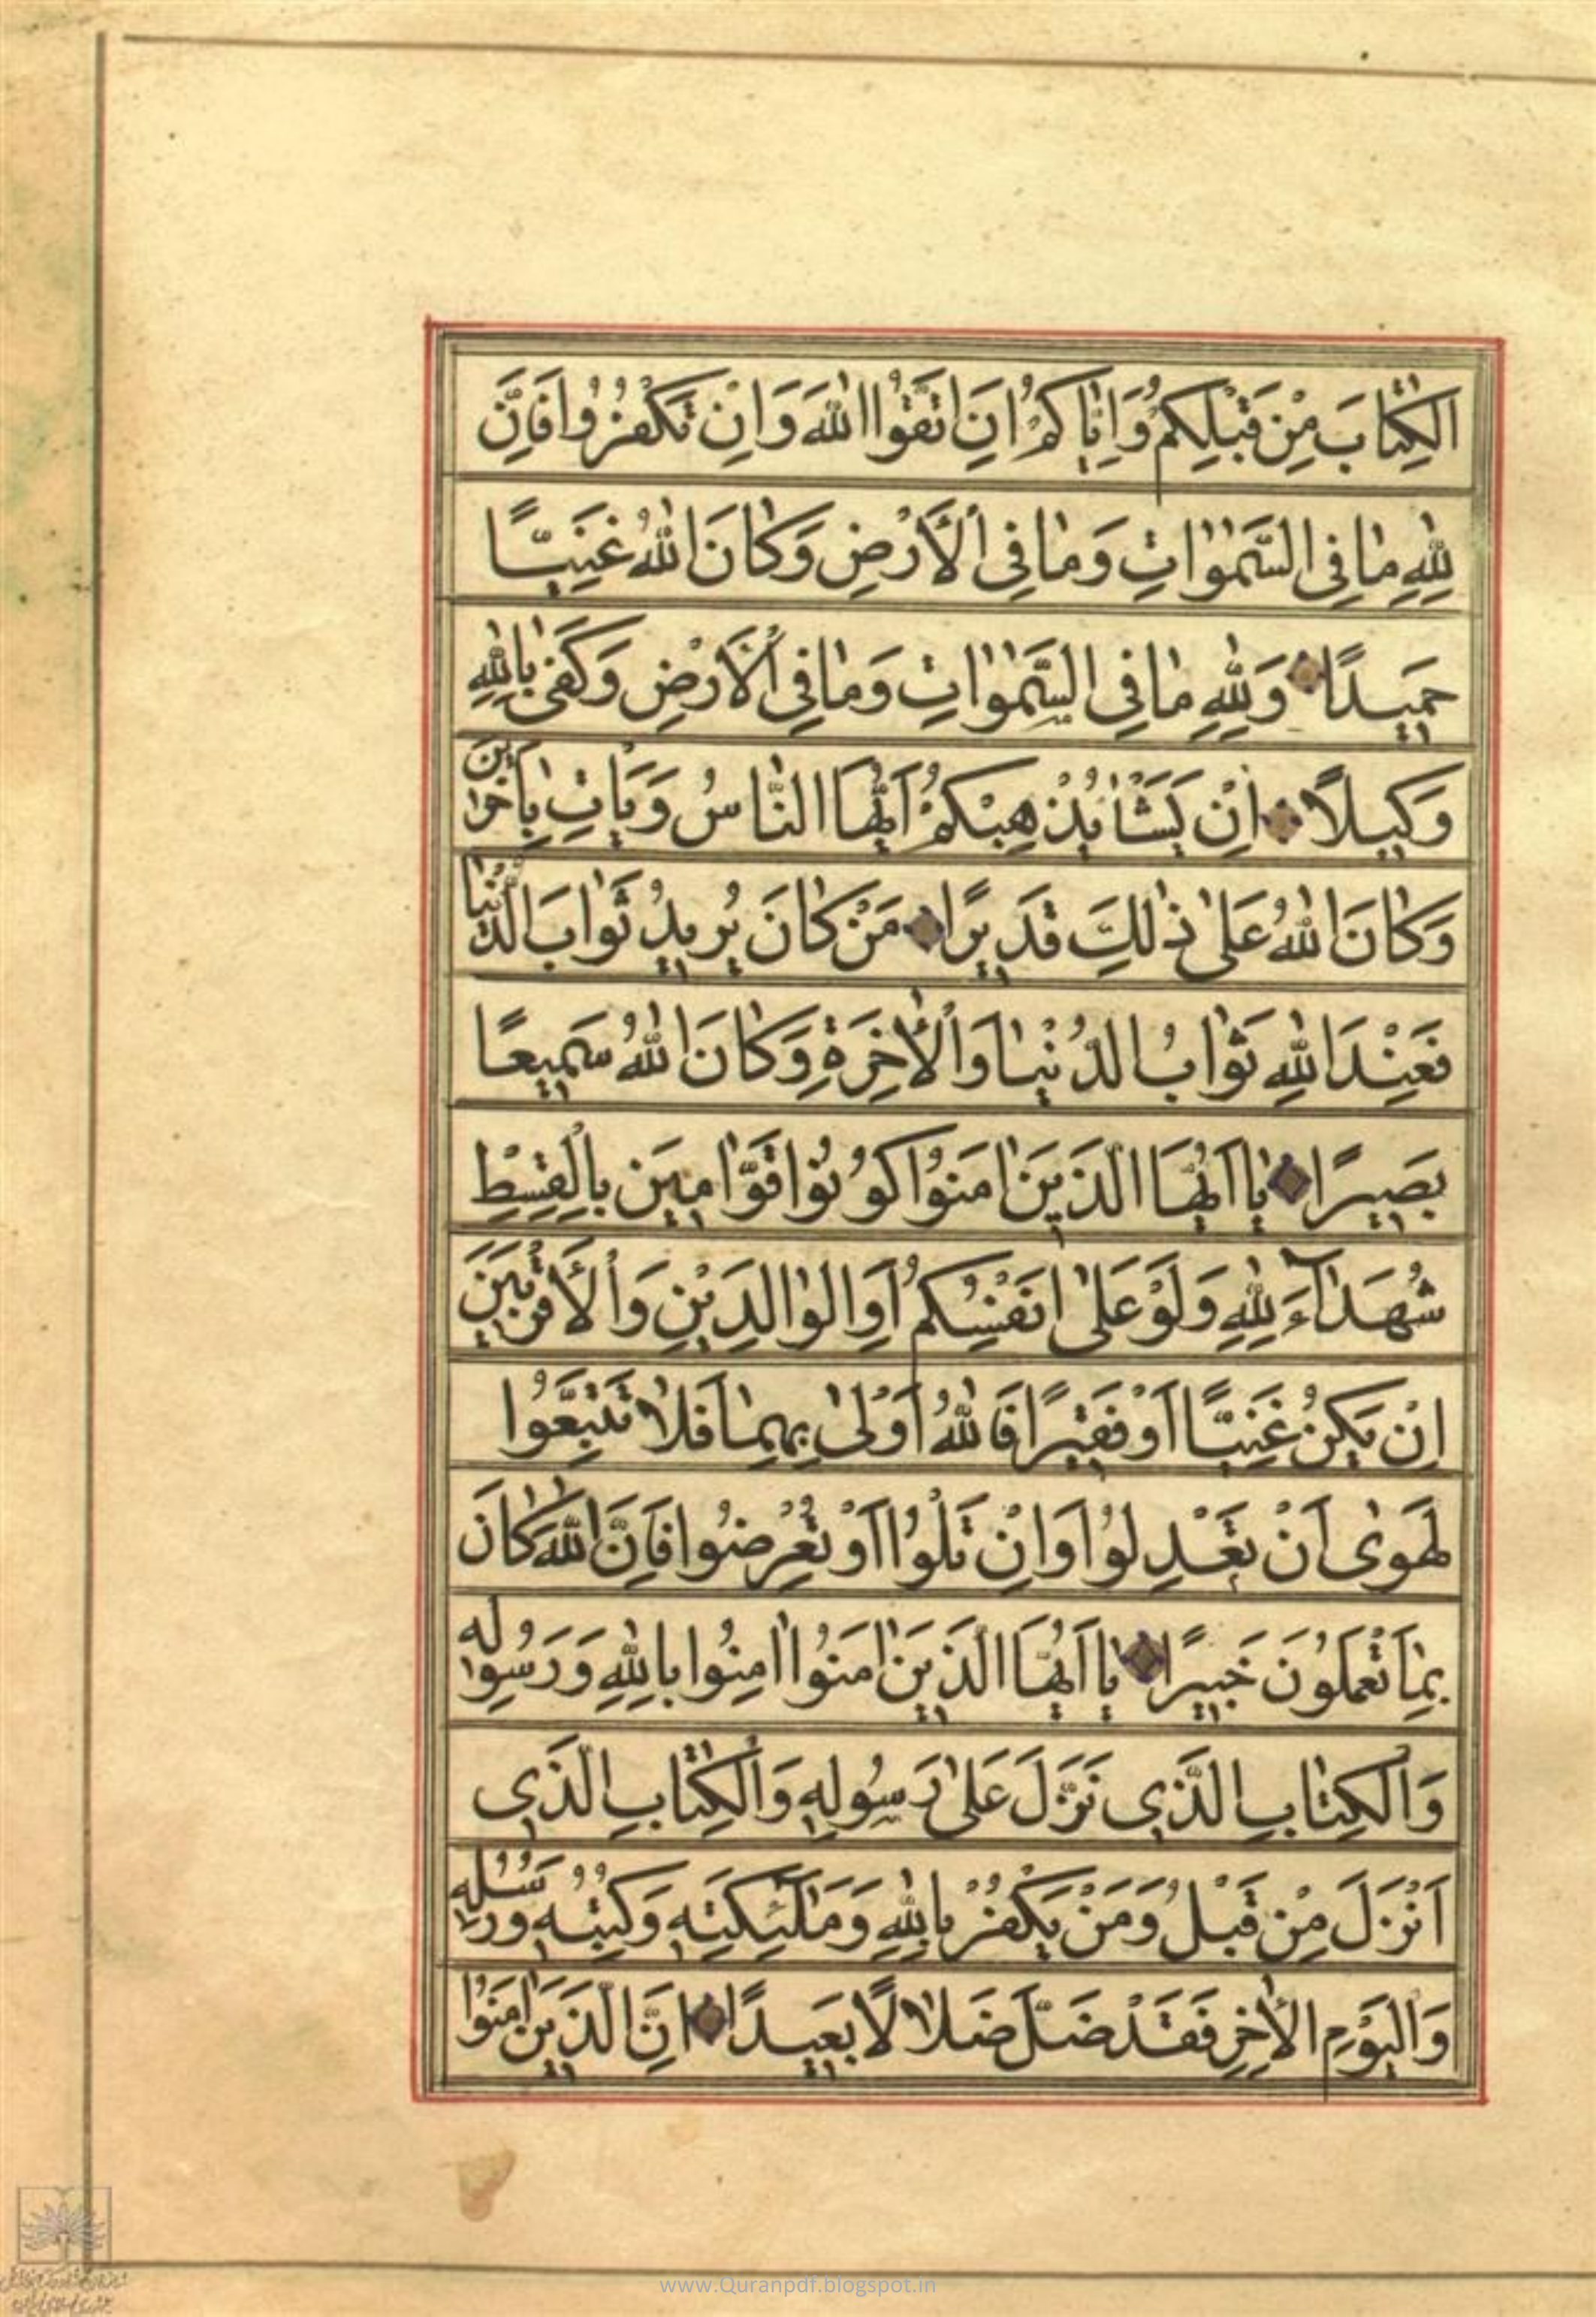 الكِتَابَ مِنْ قَبْلِكُمْ وَاِيَّاكُمْ اَنِ اتَّقُوا اللّٰهَ وَاِنْ تَكْفُرُوا فَاِنَّ
لِلّٰهِ مٰا فِى السَّمٰوٰاتِ وَمٰا فِى الْاَرْضِ وَكٰانَ اللّٰهُ غَنِيًّا
حَمِيدًا وَلِلّٰهِ مٰا فِى السَّمٰوٰاتِ وَمٰا فِى الْاَرْضِ وَكَفىٰ بِاللّٰهِ
وَكِيلًا اِنْ يَشَأْ يُذْهِبْكُمْ اَيُّهَا النّٰاسُ وَيَاْتِ بِاٰخَرِينَ
وَكٰانَ اللّٰهُ عَلىٰ ذٰلِكَ قَدِيرًا مَنْ كٰانَ يُرِيدُ ثَوٰابَ الدُّنْيٰا
فَعِنْدَ اللّٰهِ ثَوٰابُ الدُّنْيٰا وَالْاٰخِرَةِ وَكٰانَ اللّٰهُ سَمِيعًا
بَصِيرًا يٰا اَيُّهَا الَّذِينَ اٰمَنُوا كُونُوا قَوّٰامِينَ بِالْقِسْطِ
شُهَدٰاۤءَ لِلّٰهِ وَلَوْ عَلىٰ اَنْفُسِكُمْ اَوِ الْوٰالِدَيْنِ وَالْاَقْرَبِينَ
اِنْ يَكُنْ غَنِيًّا اَوْ فَقِيرًا فَاللّٰهُ اَوْلىٰ بِهِمٰا فَلٰا تَتَّبِعُوا
لهَوىٰ اَنْ تَعْدِلُوا وَاِنْ تَلْوُوا اَوْ تُعْرِضُوا فَاِنَّ اللّٰهَ كٰانَ
بِمٰا تَعْمَلُونَ خَبِيرًا يٰا اَيُّهَا الَّذِينَ اٰمَنُوا اٰمِنُوا بِاللّٰهِ وَرَسُولِهِ
وَالْكِتٰابِ الَّذِى نَزَّلَ عَلىٰ رَسُولِهِ وَالْكِتٰابِ الَّذِى
اَنْزَلَ مِنْ قَبْلُ وَمَنْ يَكْفُرْ بِاللّٰهِ وَمَلٰئِكَتِهِ وَكُتُبِهِ وَرُسُلِهِ
وَالْيَوْمِ الْاٰخِرِ فَقَدْ ضَلَّ ضَلٰالًا بَعِيدًا اِنَّ الَّذِينَ اٰمَنُوا
www.Quranpdf.blogspot.in